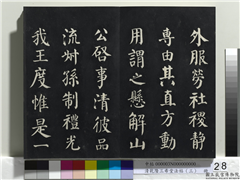 外服勞社稷靜
專由其直方動
用謂之懸解山
公啓事清彼品
流州孫制禮光
我王度惟是一
28